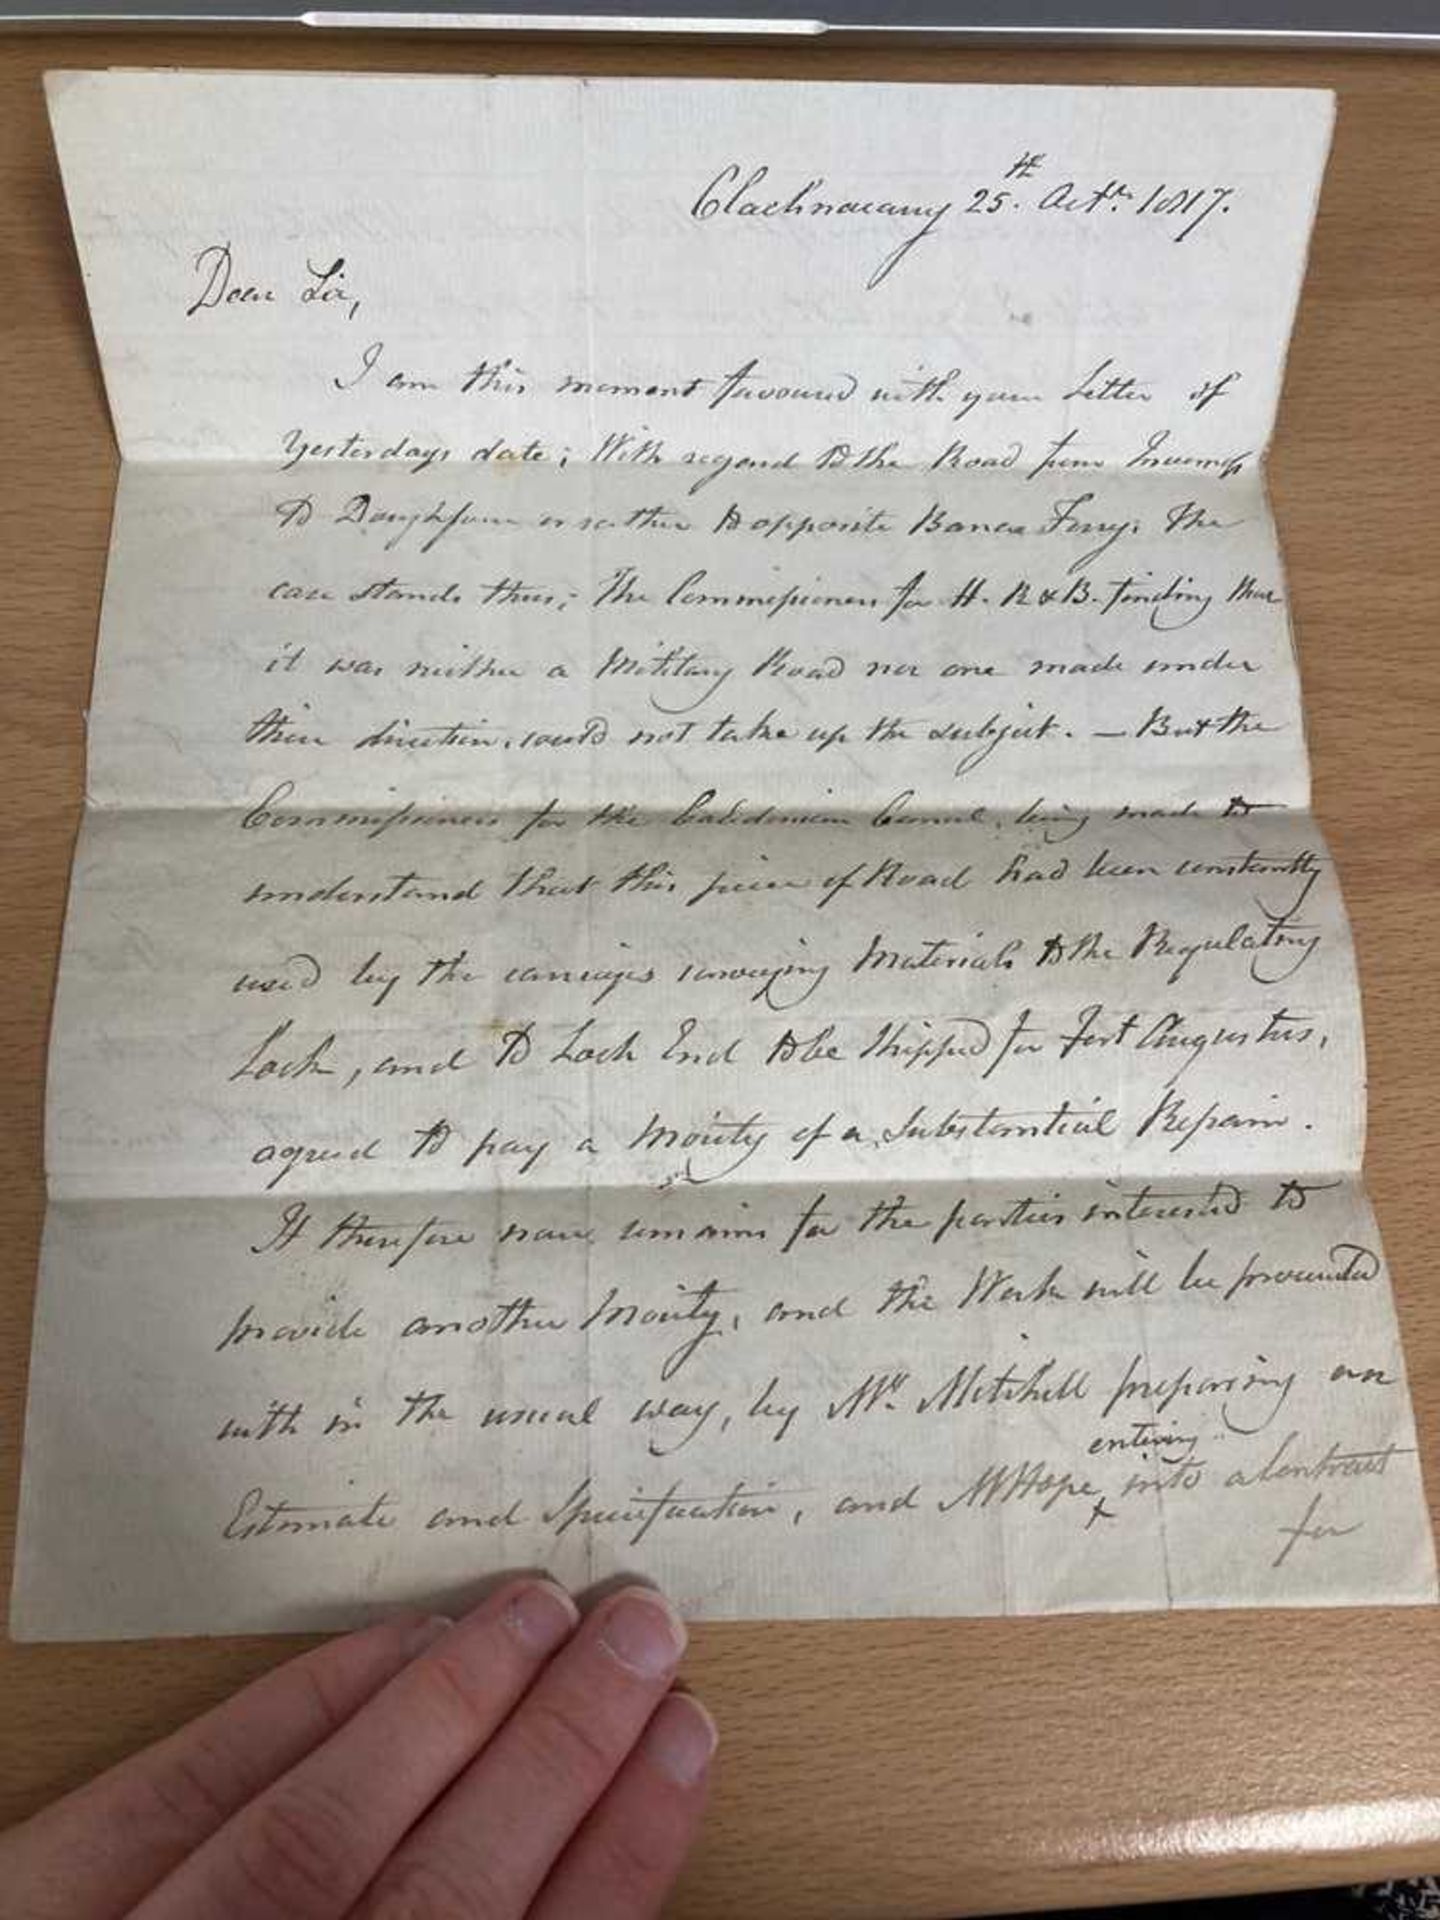 Clachnacarry 25th. Octr. 1817.
Dear Sir,
I am this moment favoured with your Letter of
Yesterdays date; With regard to the Road from Inverness
to Doughfour or rather to opposite Bona Ferry, the
case stands thus; The Commissioners for H. R & B. finding that
it was neither a Military Road nor one made under
their direction, could not take up the subject. — But the
Commissioners for the Caledonian Canal, being made to
understand that this piece of Road had been constantly
used by the carriages conveying Materials to the Regulating
Lock, and to Loch End to be Shipped for Fort Augustus,
agreed to pay a Moiety of a Substantial Repair.
It therefore now remains for the parties interested to
provide another Moiety, and the Work will be proceeded
with in the usual way, by Mr. Mitchell preparing an
entering
Estimate and Specification, and Mr Hope into a Contract
for